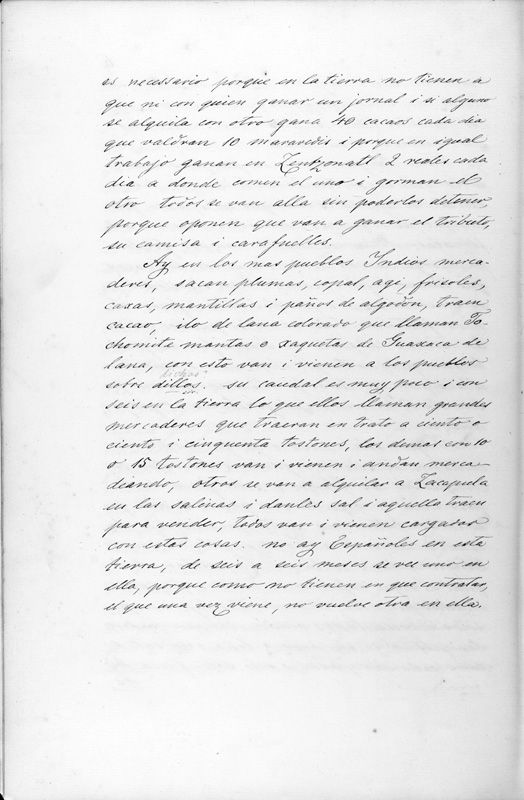 es necessario porque en la tierra no tienen a
que ni con quien ganar un jornal i si alguno
se alquila con otro gana 40 cacaos cada dia
que valdran 10 maravedis i porque en igual
trabajo ganan en 2 reales cada
dia a donde comen el uno i gorman el
otro todos se van alla sin poderlos detener,
porque oponen que van a ganar el tributo,
su camisa i carafuelles.
Ay en los mas pueblos Indios merca-
deres, sacan plumas, copal, agi, frisoles,
caxas, mantillas i paños de algodon, traen
cacao, ilo de lana colorado que llaman To-
chomite mantas o xaquetas de Guaxaca de
lana, con esto van i vienen a los pueblos
dichos
sobre dillos. su caudal es muy poco i con
seis en la tierra lo que ellos llaman grandes
mercaderes que traeran en trato a ciento o
ciento i cinquenta tostones, los demas con 10
o 15 tostones van i vienen i andan merca-
diando, otros se van a alquilar a Zacapula
en las salinas i danles sal i aquello traen
para vender, todos van i vienen cargados
con estas cosas. no ay Españoles en esta
tierra, de seis a seis meses se vee uno en
ella, porque como no tienen en que contratar,
el que una vez viene, no vuelve otra en ella.